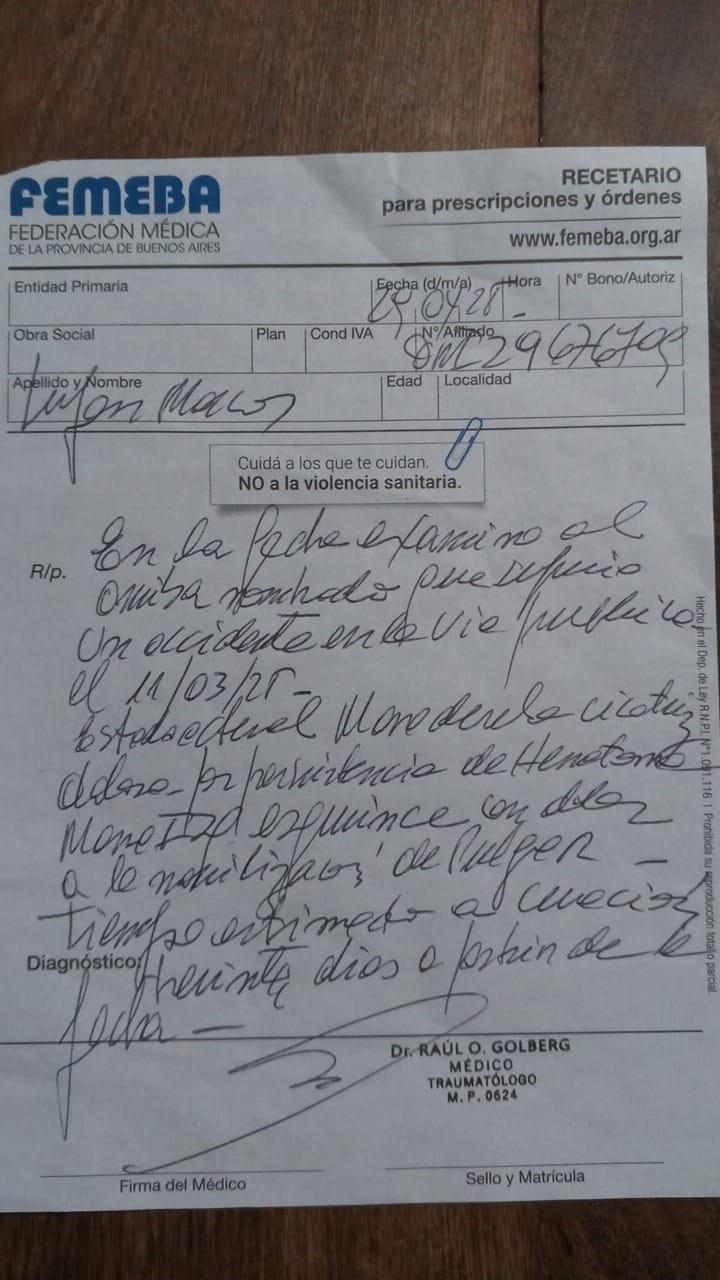 FEMEBA
FEDERACIÓN MÉDICA
DE LA PROVINCIA DE BUENOS AIRES
RECETARIO
para prescripciones y órdenes
www.femeba.org.ar
Entidad Primaria
Fecha (d/m/a)
Hora
N° Bono/Autoriz
29/04/25
Obra Social
Plan
Cond IVA
N°/Afiliado
29676709
Apellido y Nombre
Edad
Localidad
Cuidá a los que te cuidan.
NO a la violencia sanitaria.
R/p.
En la fecha examino al
nombrado que
Un accidente en la via publica
el 11/03/25
Estado actual Mano derecha cicatriz
dolorosa por persistencia de Hematoma
Mano IZQ esguince con dolor
a la movilización de Pulgar
tiempo estimado a curación
Diagnóstico:
treinta dias a partir de la
fecha
Dr. RAÚL O. GOLBERG
MÉDICO
TRAUMATÓLOGO
M. P. 0624
Firma del Médico
Sello y Matrícula
Hecho en el Dep. de Ley R.N.P.I. N°1.091.116 | Prohibida su reproducción total o parcial.